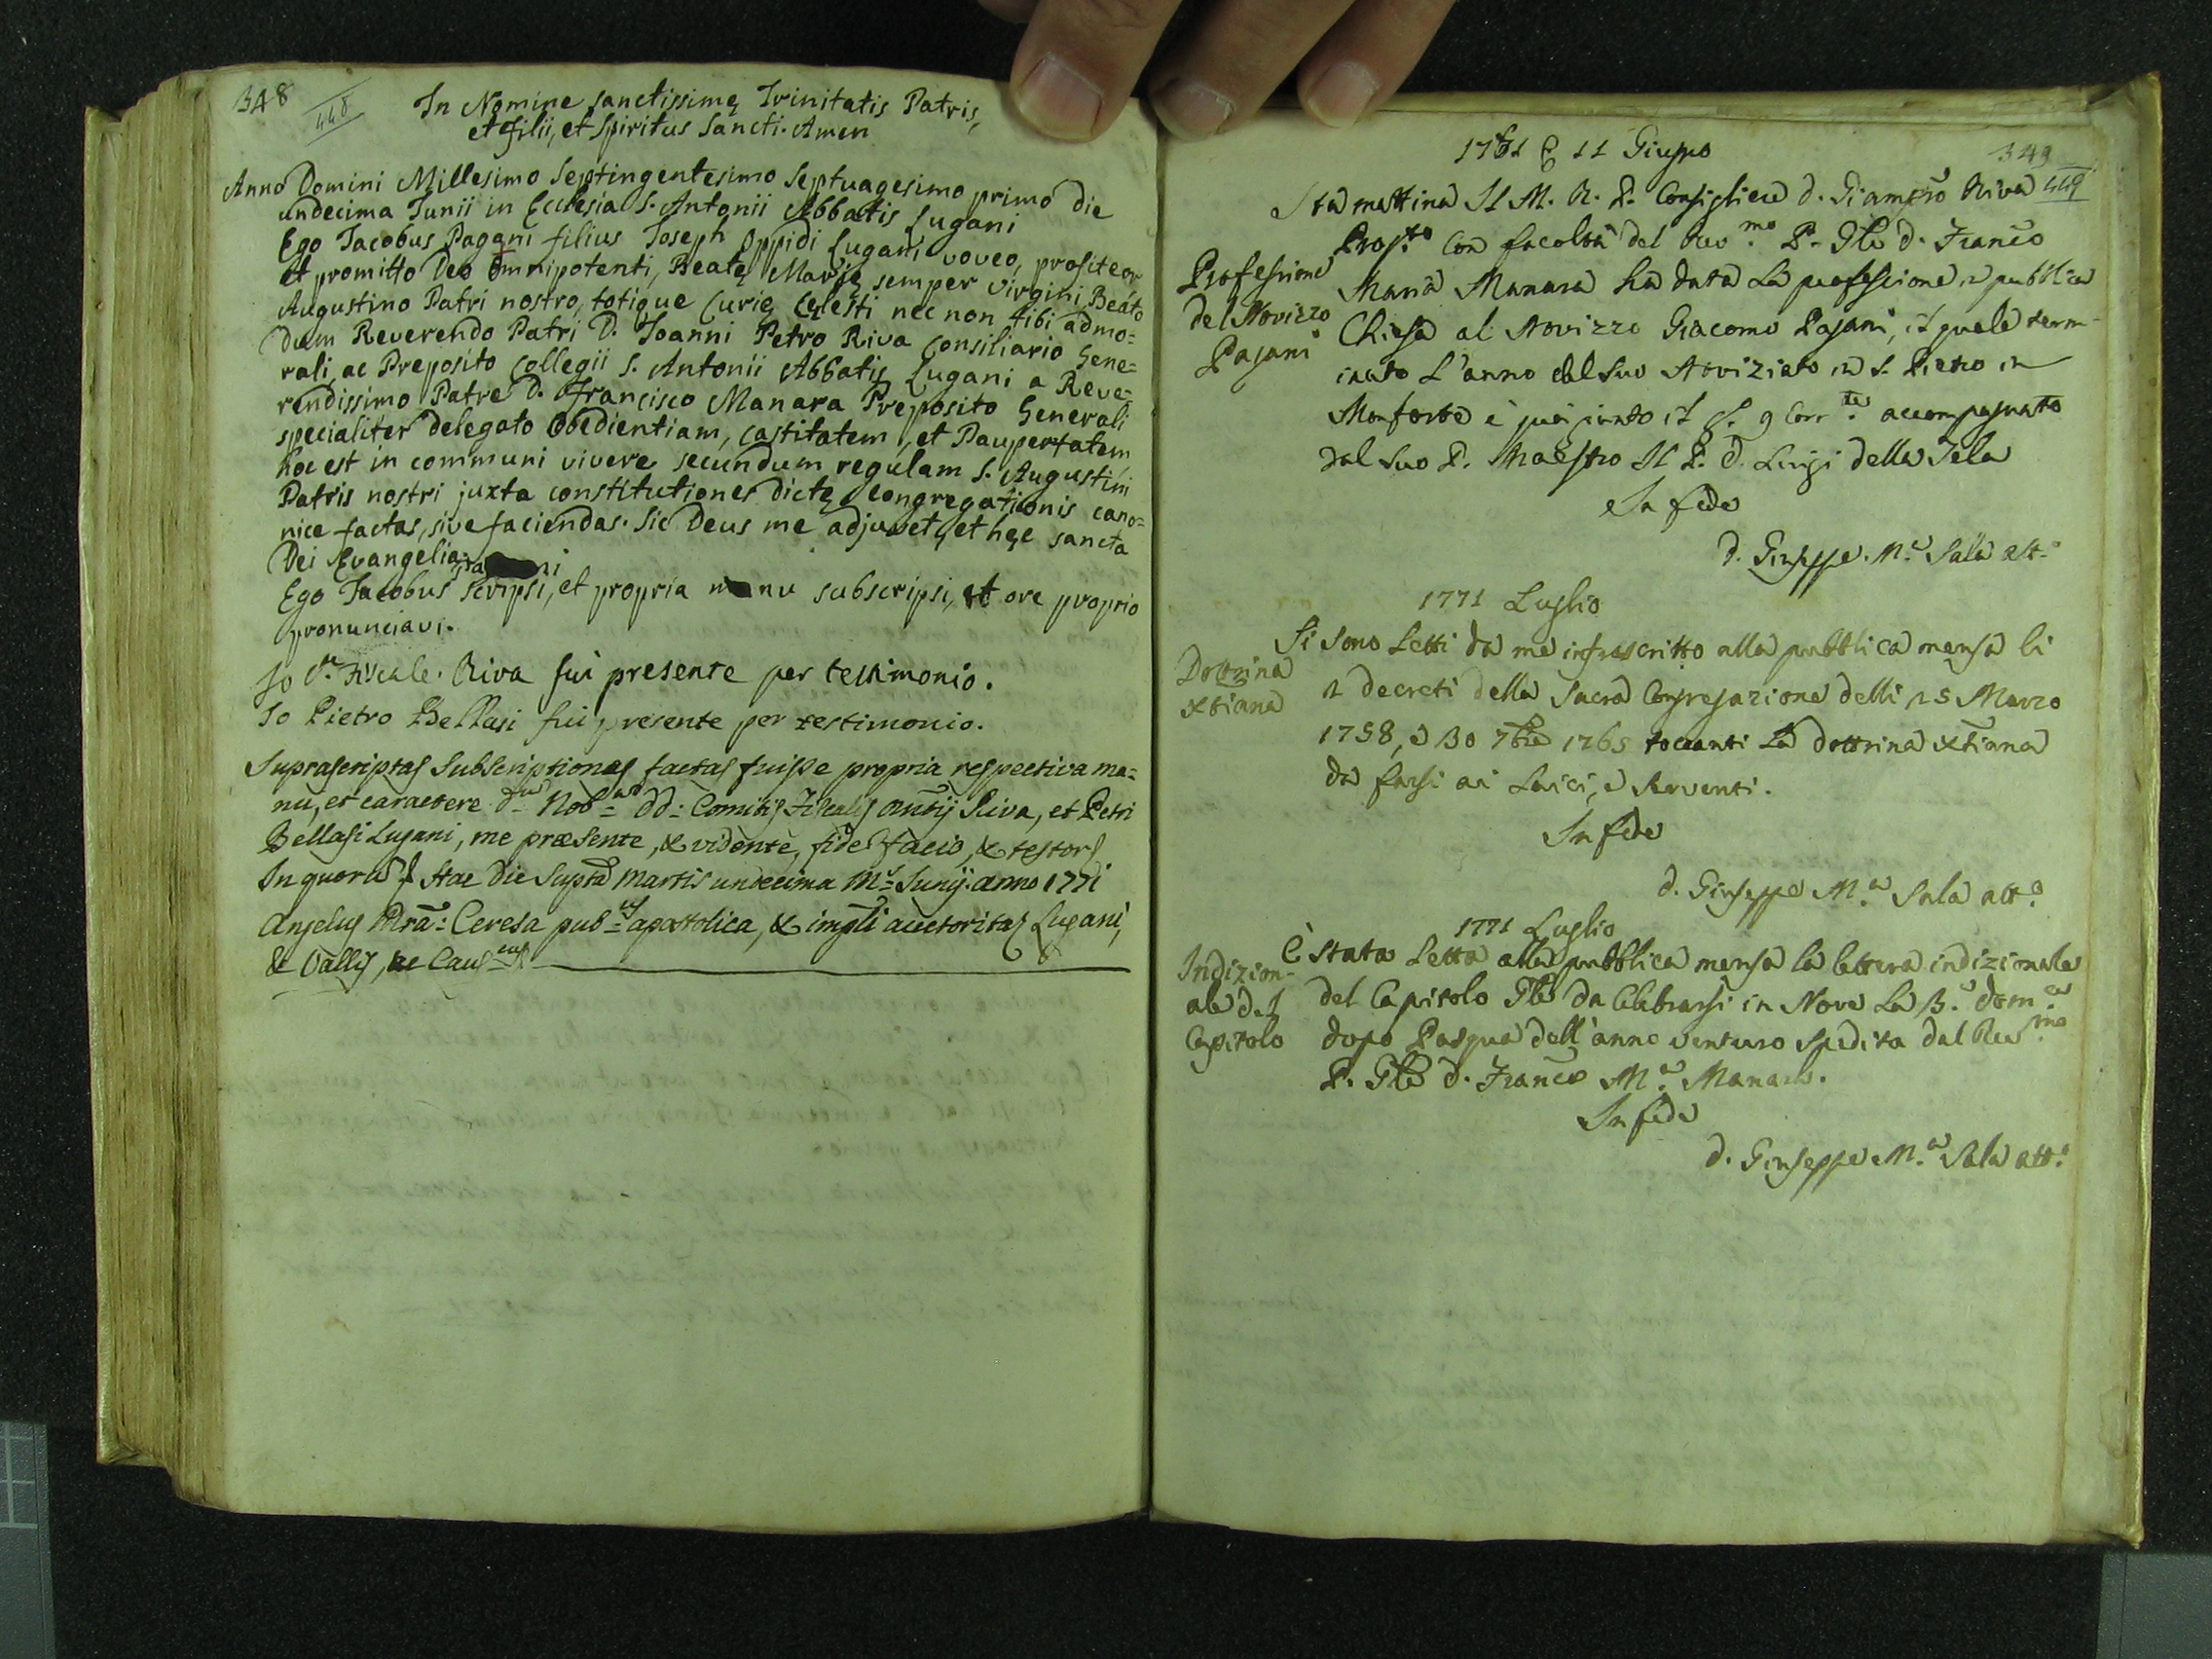 348
448
In Nomine sanctissimę Trinitatis Patris,
et Filii, et Spiritus Sancti. Amen
Anno Domini Millesimo Septingentesimo Septuagesimo primo die
undecima Junii in Ecclesia S. Antonii Abbatis Lugani
Ego Jacobus Pagani filius Joseph Oppidi Lugani voveo, profiteor
et promitto Deo Omnipotenti, Beatę Marię semper Virgini, Beato
Augustino Patri nostro, totique Curię Cęlesti nec non tibi admo=
dum Reverendo Patri D. Joanni Petro Riva Consiliario Gene=
rali, ac Preposito Collegii S. Antonii Abbatis Lugani a Reve=
rendissimo Patre D. Francisco Manara Preposito Generali
specialiter delegato Obedientiam, castitatem, et Paupertatem
hoc est in communi vivere secundum regulam S. Augustini
Patris nostri juxta constitutiones dictę congregationis cano=
nice factas, sive faciendas. Sic Deus me adjuvet, et hęc sancta
Dei Evangelia.
Ego Jacobus Pagani scripsi, et propria manu subscripsi, et ore proprio
pronunciavi.
Io Riva fui presente per testimonio.
Io Pietro Bellasi fui presente per testimonio.
Suprascriptas Subscriptiones factas fuisse propria respectiva ma=
nu, et caractere Riva, et Petri
Bellasi Lugani, me præsente, & vidente, fidẽ facio, & testor
In quorũ Hac Die Suptã Martis undecima Junij. anno 1771
Angelus Ceresa apostolica, & auctoritas Lugani,
& Vallis, ac
349
449
1771 11 Giugno
Stamattina Il M. R. P. Consigliere d. Giampro Riva
Propto con facoltà del Revmo P. Gle d. Franco
Maria Manara ha data la professione in pubblica
Chiesa al Novizzo Giacomo Pagani, il quale term-
inato l'anno del suo Noviziato in S. Pietro in
Monforte è quì giunto il g. 9 Corrte accompagnato
dal suo P. Maestro Il P. d. Luigi della Tela
In fede
d. Giuseppe Ma Sala att.o
Professione
del Novizzo
Pagani
1771 Luglio
Si sono Letti da me infrascritto alla pubblica mensa li
2 decreti della Sacra Congregazione delli 25 Marzo
1758, e 30 7bre 1765 toccanti la dottrina xtiana
da farsi ai Laici, e Serventi.
In fede
d. Giuseppe Ma Sala att.o
Dottrina
xtiana
1771 Luglio
È stata Letta alla pubblica mensa la lettera indizionale
del Capitolo Gle da Celebrarsi in Nove la 3.a domca
dopo Pasqua dell'anno venturo spedita dal Revmo
P. Gle d. Franco Ma Manara.
In fede
d. Giuseppe Ma Sala att.o
Indizion-
ale del
Capitolo